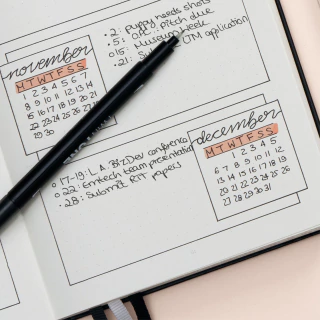 ·2: puppy needs shots
·5: O.C. pitch due
·15: Museum Week
·21: Su UTM application
november
M T W T F S S
1 2 3 4 5 6 7
8 9 10 11 12 13 14
15 16 17 18 19 20 21
22 23 24 25 26 27 28
29 30
17-19: L.A. BizDev conference
22: Emtech team presentation
·28: Submit RIT papers
december
M T W T F S S
1 2 3 4 5
6 7 8 9 10 11 12
13 14 15 16 17 18 19
20 21 22 23 24 25 26
27 28 29 30 31